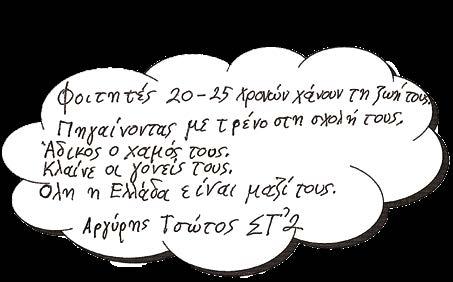 Φοιτητές 20-25 χρονών χάνουν τη ζωή τους,
Πηγαίνοντας με τρένο στη σχολή τους.
Άδικος ο χαμός τους.
Κλαίνε οι γονείς τους.
Όλη η Ελλάδα είναι μαζί τους.
Αργύρης Τσώτος ΣΤ'2